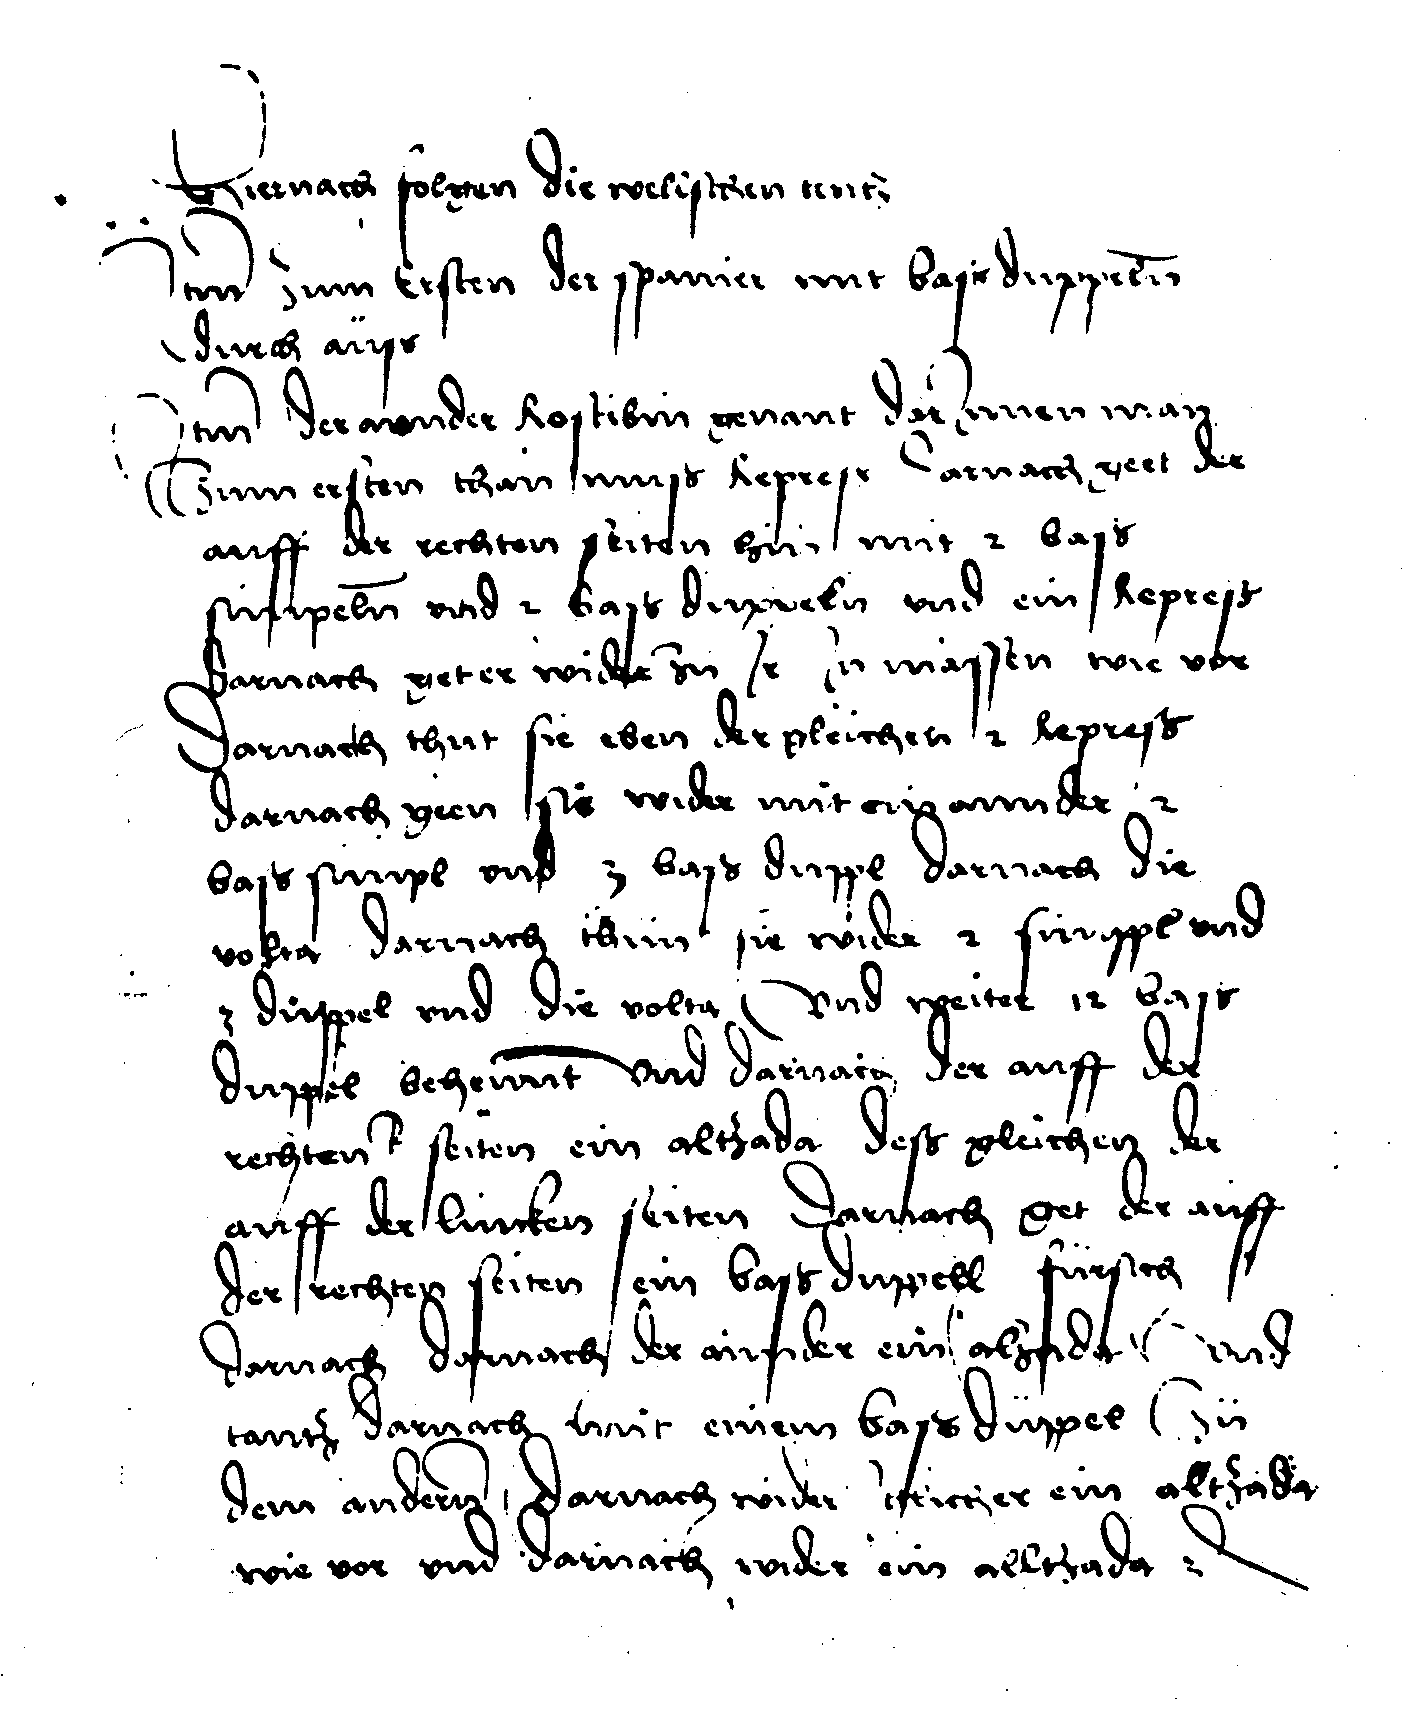 Hiernach folgen die welischen tentz
Itm zum Ersten der spanier mit bass duppeln
durch auss
Itm der annder Rostibin genant dar Innen man
Zum ersten than muss Repress Darnach geet der
auff der rechten seiten hin mit 2 bass
simpeln vnd 2 bass duppeln vnd ein Repress
Darnach get er wider zu Ir In massen wie vor
Darnach thut sie eben der gleichen 2 Repress
darnach geen sie wider mit einannder 2
bass simpl vnd 3 bass duppl darnach die
volta darnach thun sie wider 2 simppl vnd
3 duppel vnd die volta Vnd weiter 12 bass
duppel behennt Vnd darnach der auff der
rechten seiten ein altzada dess gleichen der
auff der lincken seiten Darnach get der auff
der rechten seiten ein bass duppell fursich
Darnach darnach der annder ein altzada Vnd
tantz darnach mit einem bass duppel Zu
dem andern Darnach wider ein altzada
wie vor vnd darnach wider ein alltzada 2